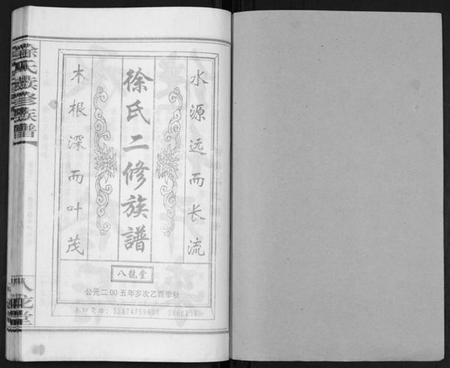 水源远而长流
徐氏二修族譜
木根深而叶茂
八龍堂
公元二00五年岁次乙酉季秋
徐氏二修族譜
八龍堂